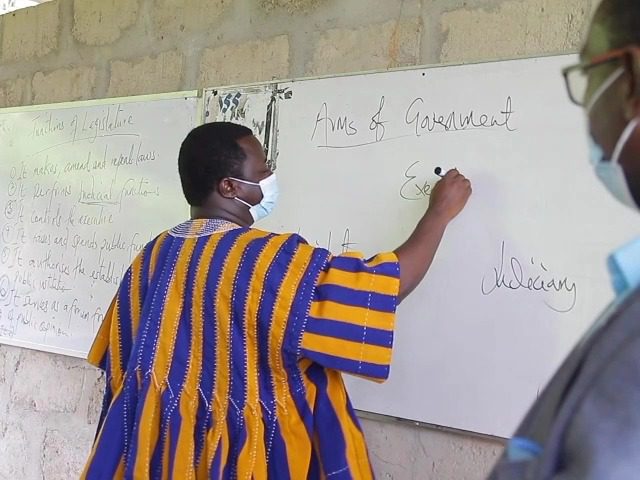 Functions of Legislature
① It makes, amend and repeal laws
② It performs Judicial functions
③ It controls the executive
④ It raises and spends public fun
⑤ It authorises the establish
public
⑥ It serves as a forum f
public opinion
Arms of Government
Exe
Judiciary